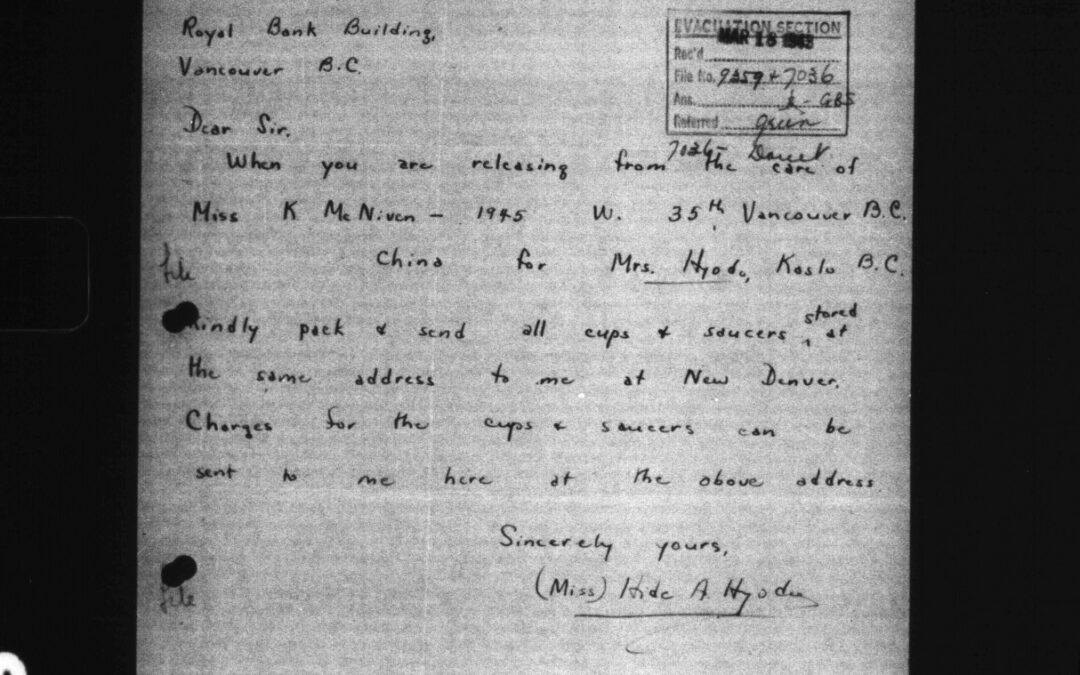 Royal Bank Building,
Vancouver B.C.
EVACUATION SECTION
MAR 18 1943
Rec'd
File No. 9359 & 7036
Ans. GBS
Referred Green
Dear Sir.
When you are releasing from the care of
Miss K McNiven - 1945 W. 35th Vancouver B.C.
China for Mrs. Hyodo, Kaslo B.C.
file
Kindly pack & send all cups & saucers stored at
the same address to me at New Denver.
Charges for the cups & saucers can be
sent to me here at the above address
Sincerely yours,
(Miss) Hide A Hyodo
file